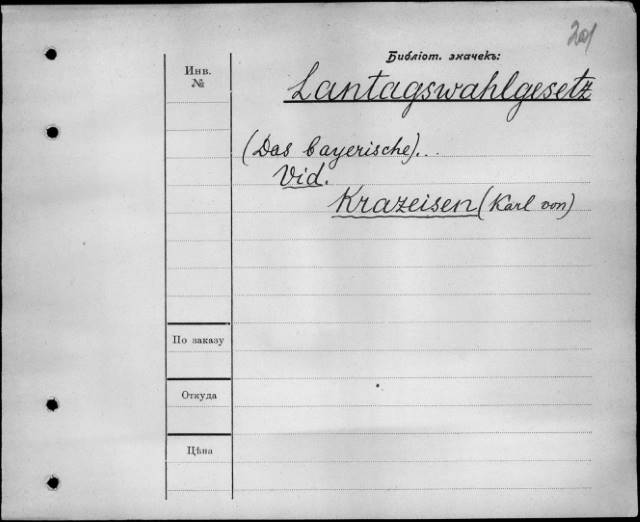 201
Библіот. значекъ:
Инв.
№
Lantagswahlgesetz
(Das bayerische)...
Vid.
Krazeisen (Karl von)
По заказу
Откуда
Цѣна